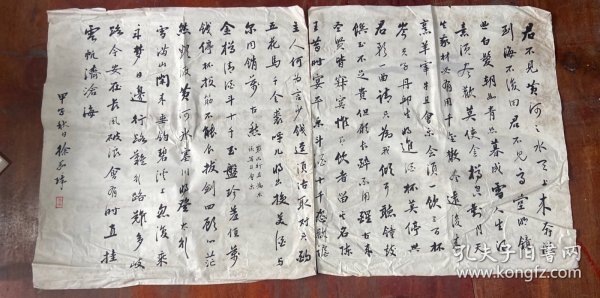 君不见黄河之水天上来奔流
到海不复回君不见高堂明镜
悲白发朝如青丝暮成雪人生得
意须尽欢莫使金樽空对月天
生我材必有用千金散尽还复来
烹羊宰牛且会须一饮三百杯
岑夫子丹丘生将进酒杯莫停与
君歌一曲请君为我倾耳听钟鼓
馔玉不足贵但愿长醉不用醒古来
圣贤皆寂寞惟有饮者留其名陈
王昔时宴平乐斗酒十千恣欢谑
主人何为言少钱径须沽取对君酌
五花马千金裘呼儿将出换美酒与
尔同销万古愁
金樽清酒斗十千玉盘珍羞值万
钱停杯投箸不能食拔剑四顾心茫
然欲渡黄河冰塞川将登太行
雪满山闲来垂钓碧溪上忽复乘
舟梦日边行路难行路难多歧
路今安在长风破浪会有时直挂
云帆济沧海
甲子秋日徐
孔夫子旧书网